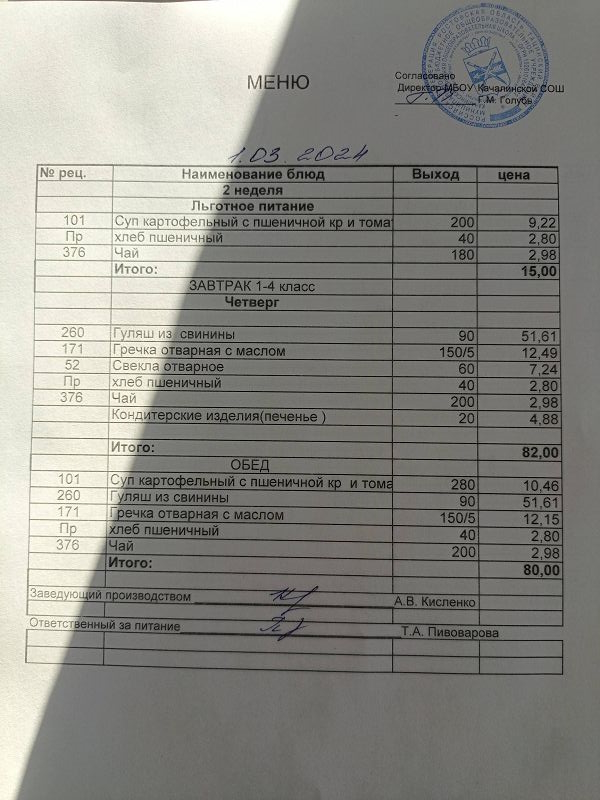 Согласовано
МЕНЮ
Директор МБОУ Качалинской СОШ
Г.М. Голубь
1.03.2024
№ рец. Наименование блюд Выход цена
2 неделя
Льготное питание
101 Суп картофельный с пшеничной кр и томат 200 9,22
Пр хлеб пшеничный 40 2,80
376 Чай 180 2,98
Итого: 15,00
ЗАВТРАК 1-4 класс
Четверг
260 Гуляш из свинины 90 51,61
171 Гречка отварная с маслом 150/5 12,49
52 Свекла отварное 60 7,24
Пр хлеб пшеничный 40 2,80
376 Чай 200 2,98
Кондитерские изделия(печенье ) 20 4,88
Итого: 82,00
ОБЕД
101 Суп картофельный с пшеничной кр и тома 280 10,46
260 Гуляш из свинины 90 51,61
171 Гречка отварная с маслом 150/5 12,15
Пр хлеб пшеничный 40 2,80
376 Чай 200 2,98
Итого: 80,00
Заведующий производством А.В. Кисленко
Ответственный за питание Т.А. Пивоварова